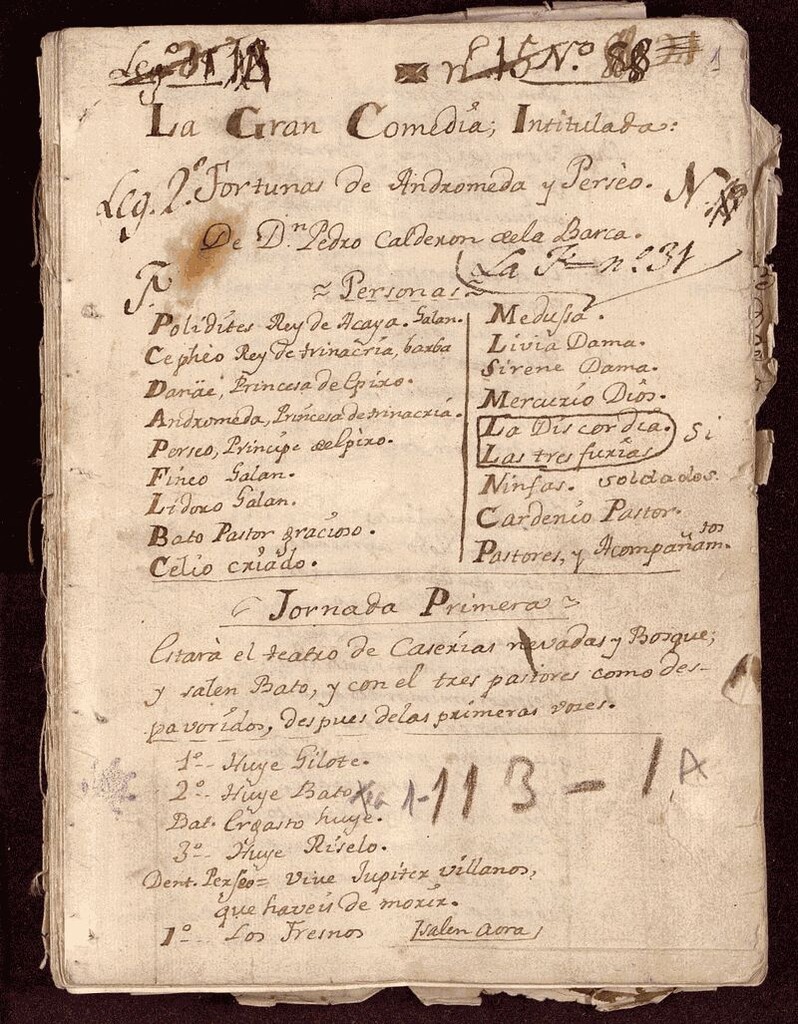 Leg.º
nº 15 N.º 88
1
La Gran Comedia; Intitulada:
Leg. 2.º Fortunas de Andromeda y Perseo. N.
De D.n Pedro Calderon dela Barca.
La F nº. 31
Personas
Polidites Rey de Acaya. Galan.
Cepheo Rey de trinacria, barba
Danäe, Princesa de Epiro.
Andromeda, Princesa de trinacria.
Perseo, Principe de Epiro.
Fineo Galan.
Lidoro Galan.
Bato Pastor gracioso.
Celio criado.
Medussa.
Livia Dama.
Sirene Dama.
Mercurio Dios.
La Discordia. Si
Las tres furias
Ninfas. soldados.
Cardenio Pastor.
Pastores, y Acompañam.tos
Jornada Primera
Estarà el teatro de Caserias nevadas y Bosque;
y salen Bato, y con el tres pastores como des-
pavoridos, despues delas primeras vozes.
1º-- Huye Gilote.
2º-- Huye Bato
1-113-1A
Bat. Ergasto huye.
3º-- Huye Riselo.
Dent. Perseo= Vive Jupiter villanos,
que haveis de morir.
1º-- Los Fresnos salen aora